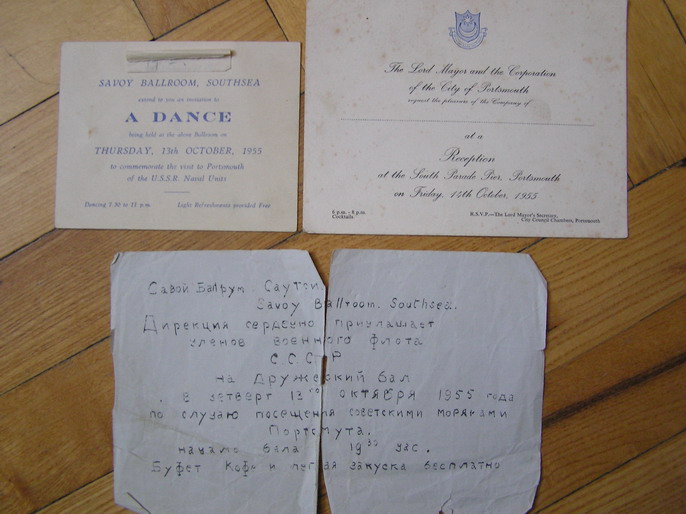 SAVOY BALLROOM, SOUTHSEA
extend to you an invitation to
A DANCE
being held at the above Ballroom on
THURSDAY, 13th OCTOBER, 1955
to commemorate the visit to Portsmouth
of the U.S.S.R. Naval Units
Dancing 7.30 to 11 p.m.
Light Refreshments provided Free
The Lord Mayor and the Corporation
of the City of Portsmouth
request the pleasure of the Company of
at a
Reception
at the South Parade Pier, Portsmouth
on Friday, 14th October, 1955
6 p.m.–8 p.m.
Cocktails
R.S.V.P.—The Lord Mayor's Secretary,
City Council Chambers, Portsmouth
Савой Балрум. Саутси.
Savoy Ballroom. Southsea.
Дирекция сердечно приглашает
членов военного флота
С.С.С.Р
на Дружеский бал
в четверг 13го октября 1955 года
по случаю посещения советскими моряками
Портсмута.
начало бала 19 30 час.
Буфет Кофе и легкая закуска бесплатно